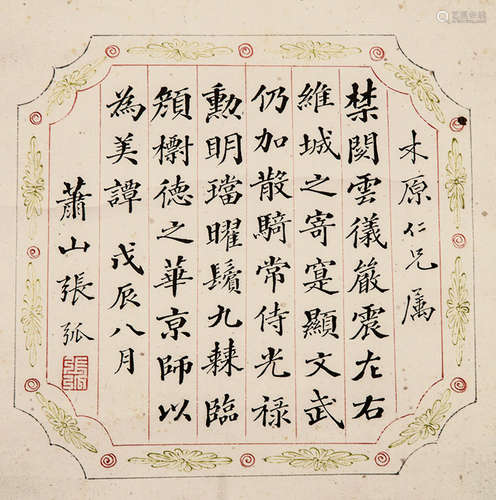 木原仁兄属
禁闕雲儀嚴震左右
維城之寄寔顯文武
仍加散騎常侍光祿
勳明璫曜鬢九棘臨
顏樹德之華京師以
為美譚 戊辰八月
蕭山張弧